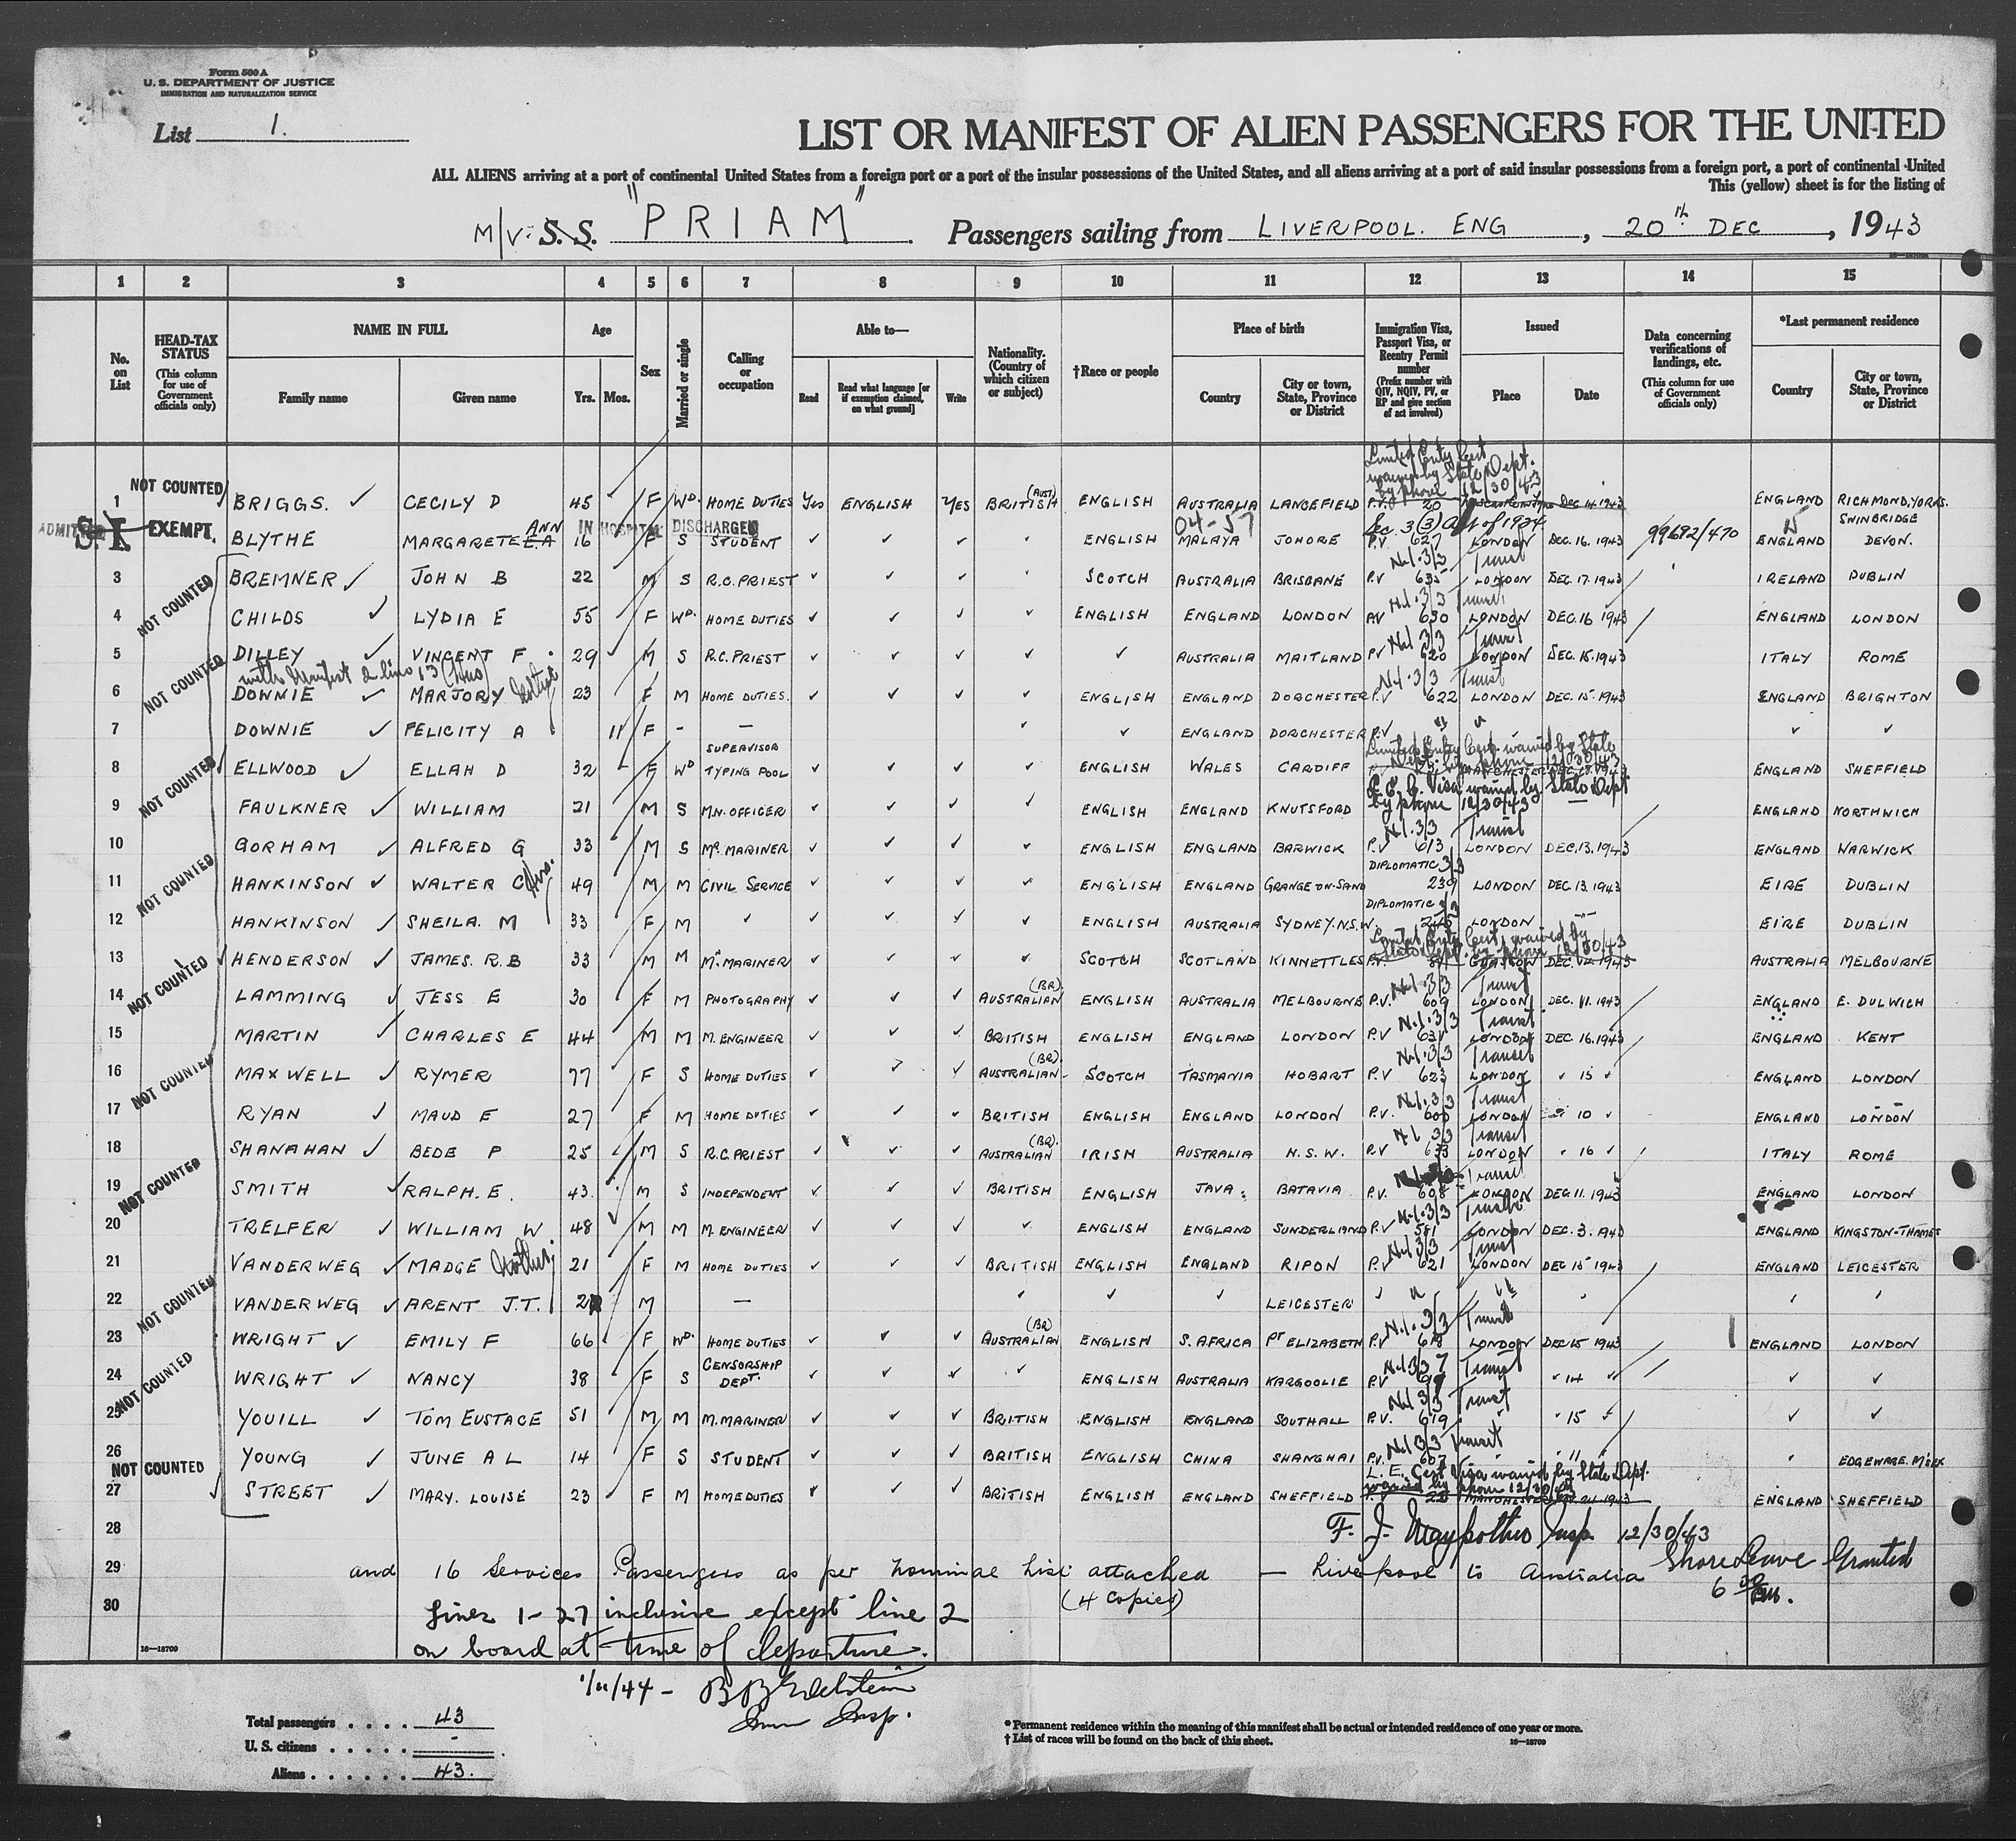 Form 500 A
U. S. DEPARTMENT OF JUSTICE
IMMIGRATION AND NATURALIZATION SERVICE
List 1.
LIST OR MANIFEST OF ALIEN PASSENGERS FOR THE UNITED
ALL ALIENS arriving at a port of continental United States from a foreign port or a port of the insular possessions of the United States, and all aliens arriving at a port of said insular possessions from a foreign port, a port of continental United
This (yellow) sheet is for the listing of
M/V. S. S. "PRIAM" Passengers sailing from LIVERPOOL. ENG, 20th DEC, 1943
1 2 3 4 5 6 7 8 9 10 11 12 13 14 15
No. on List
HEAD-TAX STATUS (This column for use of Government officials only)
NAME IN FULL Family name Given name
Age Yrs. Mos.
Sex
Married or single
Calling or occupation
Able to— Read Read what language [or if exemption claimed, on what ground] Write
Nationality. (Country of which citizen or subject)
†Race or people
Place of birth Country City or town, State, Province or District
Immigration Visa, Passport Visa, or Reentry Permit number (Prefix number with QIV, NQIV, PV, or RP and give section of act involved)
Issued Place Date
Data concerning verifications of landings, etc. (This column for use of Government officials only)
*Last permanent residence Country City or town, State, Province or District
Limited Entry Cert waived by State Dept. by phone 12/30/43
1 NOT COUNTED BRIGGS. ✓ CECILY D 45 F WD. HOME DUTIES Yes ENGLISH Yes BRITISH (AUST) ENGLISH AUSTRALIA LANCEFIELD P.V. 20 DEC 14.1943 ENGLAND RICHMOND, YORKS.
ADMITTED S.I. EXEMPT. BLYTHE MARGARETE E.A ANN 16 IN HOSPITAL DISCHARGED F S STUDENT ✓ ✓ ✓ ENGLISH 04-57 MALAYA JOHORE Sec 3(3) Act of 1924 P.V 627 LONDON DEC. 16. 1943 99692/470 ENGLAND SWINBRIDGE DEVON.
3 NOT COUNTED BREMNER ✓ JOHN B 22 M S R.C. PRIEST ✓ ✓ ✓ SCOTCH AUSTRALIA BRISBANE N.I.3/3 Transit P.V 635 LONDON DEC. 17.1943 IRELAND DUBLIN
4 CHILDS ✓ LYDIA E 55 F WD. HOME DUTIES ✓ ✓ ✓ ✓ ENGLISH ENGLAND LONDON N.I.3/3 Transit P.V 630 LONDON DEC.16 1943 ENGLAND LONDON
5 NOT COUNTED DILLEY ✓ VINCENT F. 29 M S R.C. PRIEST ✓ ✓ ✓ ✓ ✓ AUSTRALIA MAITLAND N.I.3/3 Transit P.V 620 LONDON DEC. 15.1943 ITALY ROME
with Manifest 2 line 13 (Hus)
6 DOWNIE ✓ MARJORY 23 F M HOME DUTIES. ✓ ✓ ✓ ✓ ENGLISH ENGLAND DORCHESTER N.I.3/3 Transit P.V 622 LONDON DEC. 15.1943 ENGLAND BRIGHTON
7 DOWNIE ✓ FELICITY A 11 F - — ✓ ✓ ENGLAND DORCHESTER P.V " " ✓ ✓ ✓
Limited Entry Cert. waived by State Dept. by phone 12/30/43
8 NOT COUNTED ELLWOOD ✓ ELLAH D 32 F WD SUPERVISOR TYPING POOL ✓ ✓ ✓ ✓ ENGLISH WALES CARDIFF ENGLAND SHEFFIELD
9 FAULKNER ✓ WILLIAM 21 M S M.N. OFFICER ✓ ✓ ✓ ✓ ENGLISH ENGLAND KNUTSFORD Visa waived by State Dept by phone 12/30/43 — ENGLAND NORTHWICH
10 GORHAM ✓ ALFRED G 33 M S Mr. MARINER ✓ ✓ ✓ ✓ ENGLISH ENGLAND BARWICK N.I.3/3 Transit P.V 613 LONDON DEC.13.1943 ENGLAND WARWICK
11 NOT COUNTED HANKINSON ✓ WALTER C 49 M M CIVIL SERVICE ✓ ✓ ✓ ✓ ENGLISH ENGLAND GRANGE-ON-SAND DIPLOMATIC 3/3 239 LONDON DEC 13.1943 EIRE DUBLIN
12 HANKINSON ✓ SHEILA. M 33 F M ✓ ✓ ✓ ✓ ✓ ENGLISH AUSTRALIA SYDNEY. N.S.W. DIPLOMATIC 3/3 LONDON -"- EIRE DUBLIN
Limited Entry Cert. waived by State Dept. by phone 12/30/43
13 NOT COUNTED HENDERSON ✓ JAMES. R.B 33 M M Mr. MARINER ✓ ✓ ✓ ✓ SCOTCH SCOTLAND KINNETTLES P.V. GLASGOW DEC. 1943 AUSTRALIA MELBOURNE
14 LAMMING ✓ JESS E 30 F M PHOTOGRAPHY ✓ ✓ ✓ AUSTRALIAN (BR). ENGLISH AUSTRALIA MELBOURNE N.I.3/3 Transit P.V. 609 LONDON DEC. 11.1943 ENGLAND E. DULWICH
15 MARTIN ✓ CHARLES E 44 M M M. ENGINEER ✓ ✓ ✓ BRITISH ENGLISH ENGLAND LONDON N.I.3/3 Transit P.V 631 LONDON DEC. 16.1943 ENGLAND KENT
16 NOT COUNTED MAXWELL ✓ RYMER 77 F S HOME DUTIES ✓ ✓ ✓ AUSTRALIAN (BR). SCOTCH TASMANIA HOBART N.I.3/3 Transit P.V 623 LONDON " 15 " ENGLAND LONDON
17 RYAN ✓ MAUD E 27 F M HOME DUTIES ✓ ✓ ✓ BRITISH ENGLISH ENGLAND LONDON N.I.3/3 Transit P.V. 600 LONDON " 10 " ENGLAND LONDON
18 SHANAHAN ✓ BEDE P 25 M S R.C. PRIEST ✓ ✓ AUSTRALIAN (BR). IRISH AUSTRALIA N.S.W. N.I 3/3 Transit P.V 633 LONDON " 16 " ITALY ROME
19 NOT COUNTED SMITH ✓ RALPH. E. 43. M S INDEPENDENT ✓ ✓ ✓ BRITISH ENGLISH JAVA BATAVIA Transit P.V. 608 LONDON DEC 11.1943 ENGLAND LONDON
20 TRELFER ✓ WILLIAM W 48 M M M. ENGINEER ✓ ✓ ✓ ✓ ENGLISH ENGLAND SUNDERLAND N.I.3/3 Transit P.V 581 LONDON DEC. 3. 1943 ENGLAND KINGSTON-THAMES
21 VANDERWEG ✓ MADGE (Mother) 21 F M HOME DUTIES ✓ ✓ ✓ BRITISH ENGLISH ENGLAND RIPON N.I.3/3 Transit P.V 621 LONDON DEC 15 1943 ENGLAND LEICESTER
22 NOT COUNTED VANDERWEG ✓ ARENT J.T. 2 M — ✓ ✓ ✓ LEICESTER
23 WRIGHT ✓ EMILY F 66 F WD. HOME DUTIES ✓ ✓ ✓ AUSTRALIAN (BR) ENGLISH S. AFRICA PT ELIZABETH N.I.3/3 Transit P.V 618 LONDON DEC 15 1943 ENGLAND LONDON
24 NOT COUNTED WRIGHT ✓ NANCY 38 F S CENSORSHIP DEPT. ✓ ✓ ✓ ✓ ENGLISH AUSTRALIA KARGOOLIE Transit P.V " 14 " ✓ ✓
25 YOUILL ✓ TOM EUSTACE 51 M M M. MARINER ✓ ✓ ✓ BRITISH ENGLISH ENGLAND SOUTHALL N.I 3/3 Transit P.V. 619 " " 15 " ✓ ✓
26 NOT COUNTED YOUNG ✓ JUNE A L 14 F S STUDENT ✓ ✓ ✓ BRITISH ENGLISH CHINA SHANGHAI N.I 3/3 Transit P.V. 607 " 11 " EDGEWARE. M'SEX
L. E. Cert Visa waived by State Dept. by phone 12/30/43
27 STREET ✓ MARY. LOUISE 23 F M HOME DUTIES ✓ ✓ ✓ BRITISH ENGLISH ENGLAND SHEFFIELD P.V 22 MANCHESTER 1943 ENGLAND SHEFFIELD
28 F. J. Insp. 12/30/43
29 and 16 Services Passengers as per nominal list attached — Liverpool to Australia Shore Leave Granted
(4 copies)
30 Lines 1-27 inclusive except line 2
on board at time of departure.
16—18709
1/11/44 – B B Edelstein
Imm Insp.
Total passengers . . . . 43
U. S. citizens . . . . . -
Aliens . . . . . . 43.
* Permanent residence within the meaning of this manifest shall be actual or intended residence of one year or more.
† List of races will be found on the back of this sheet. 16—18709